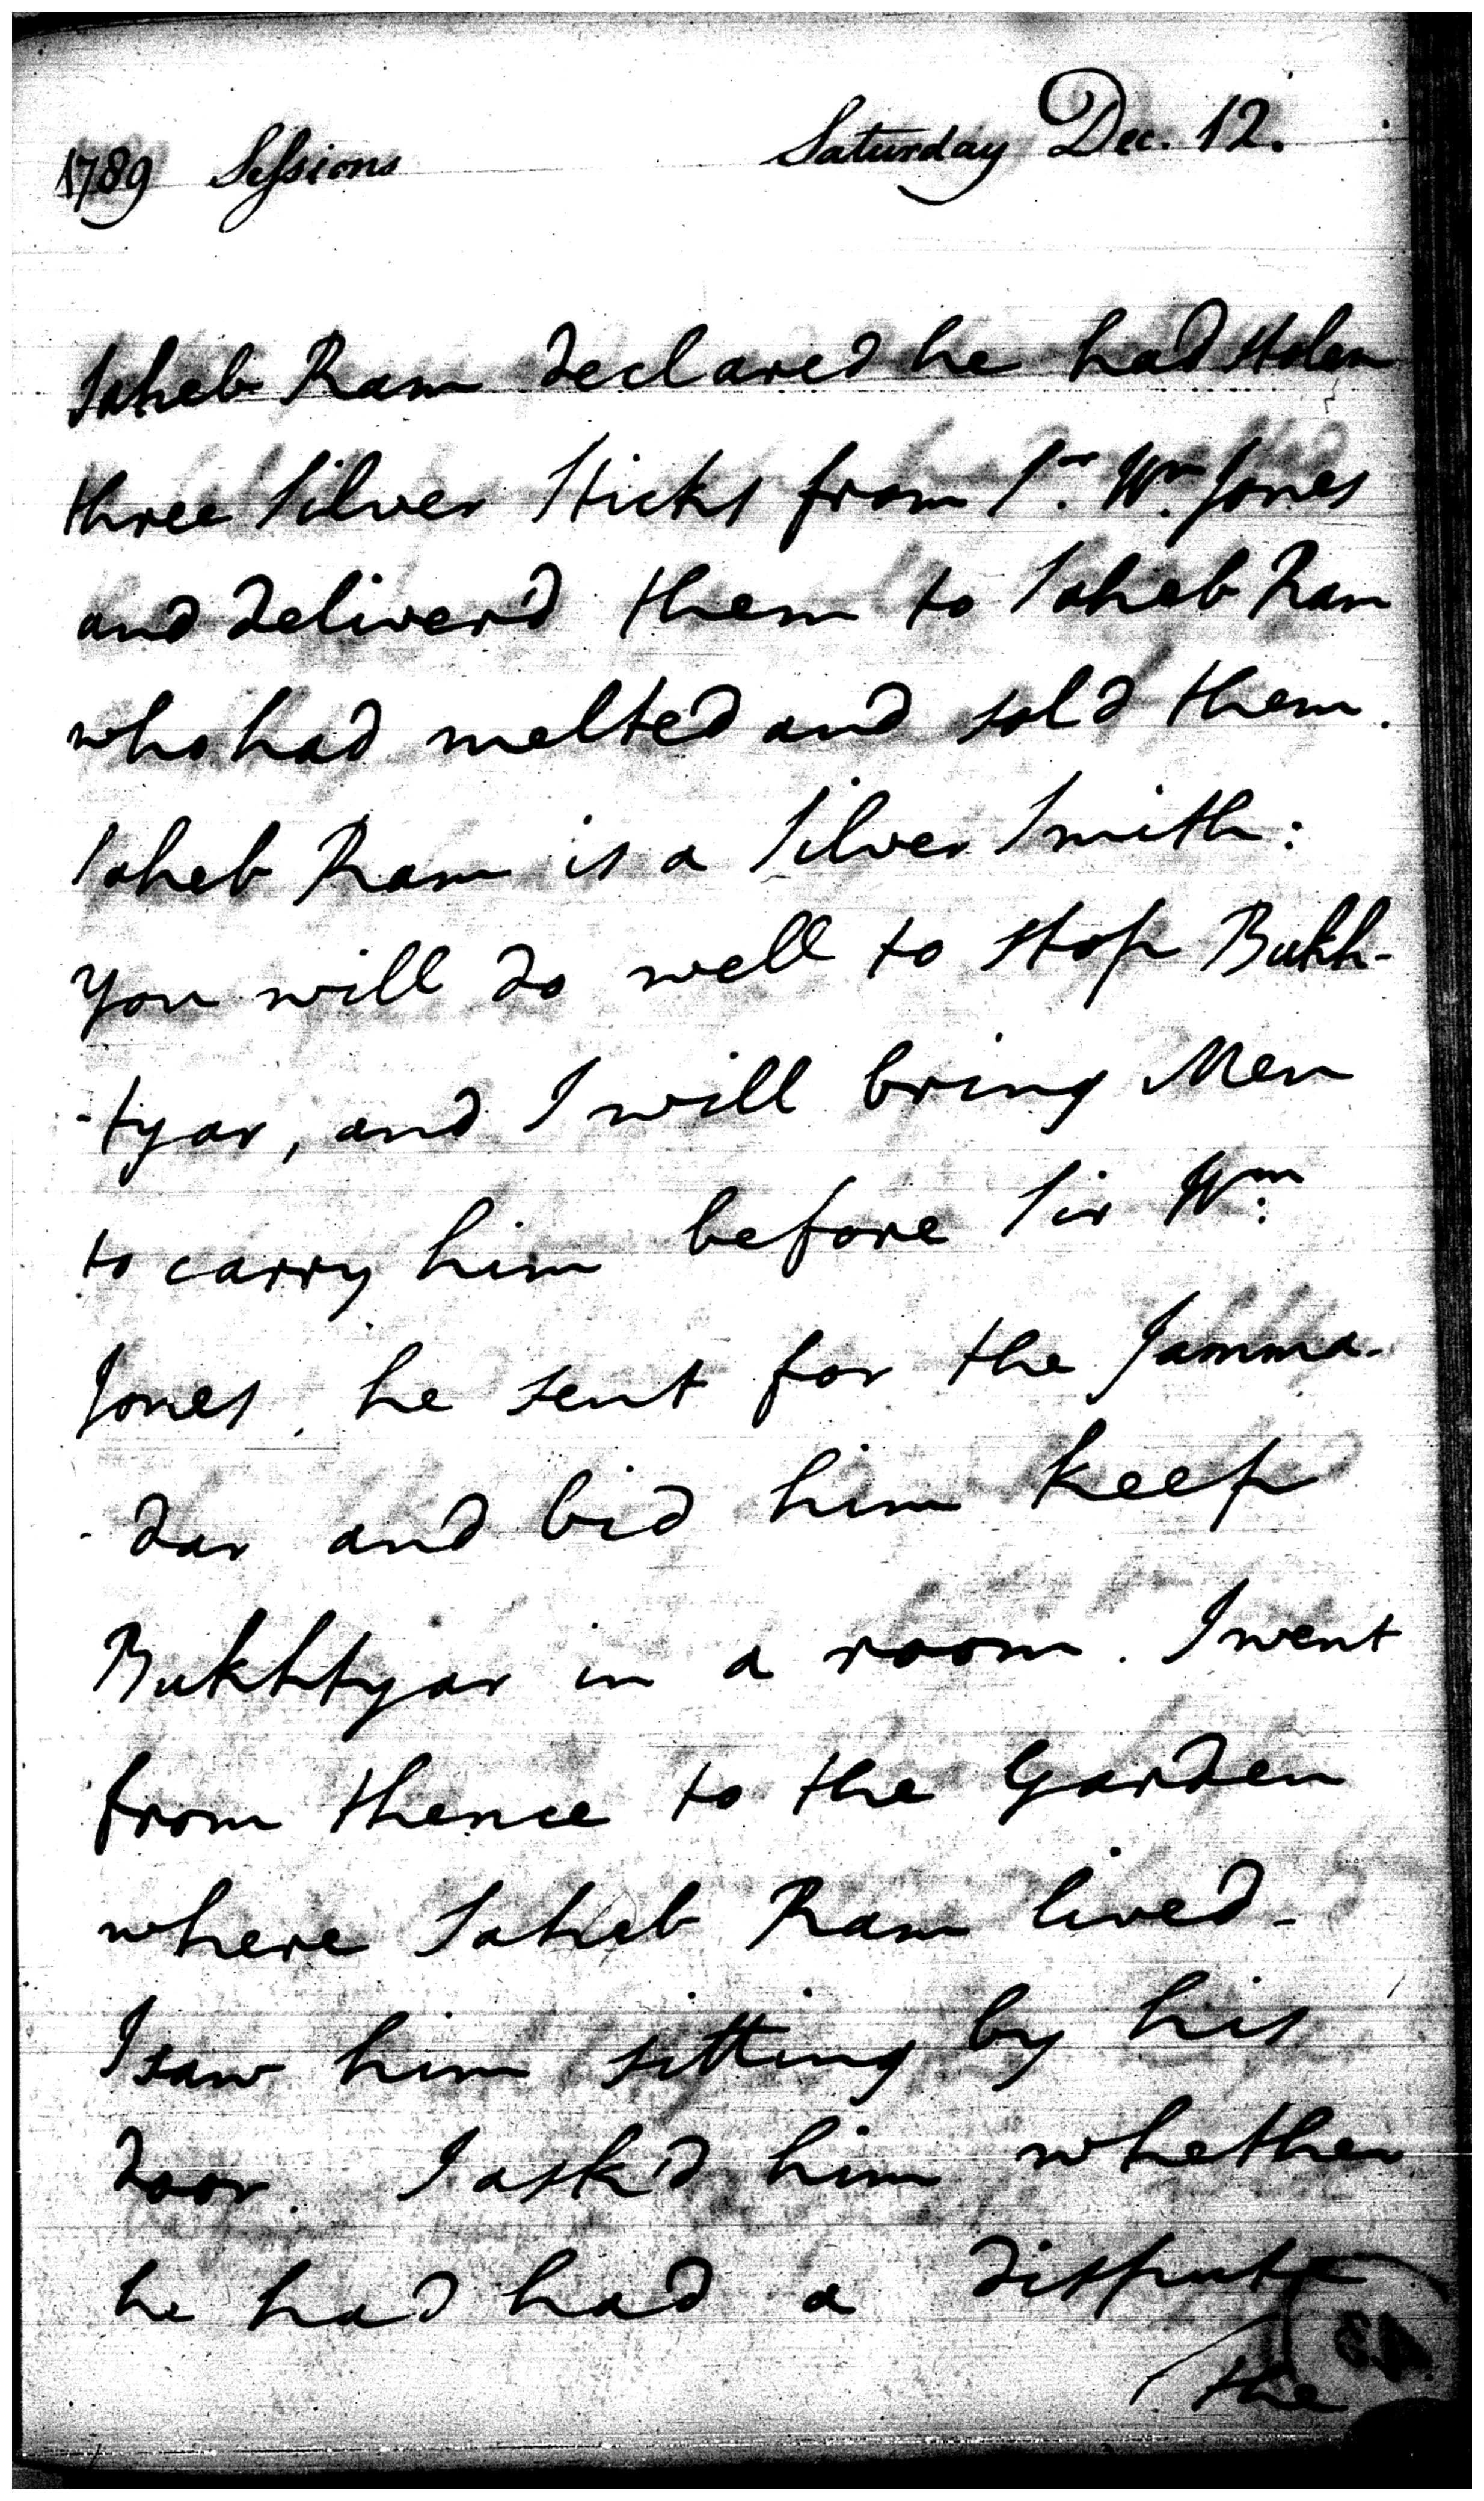 1789 Sessions Saturday Dec. 12.
Saheb Ram declared he had stolen
three Silver Sticks from Sr. Wm. Jones
and deliver'd them to Saheb Ram
who had melted and sold them.
Saheb Ram is a Silver Smith:
you will do well to stop Bukh-
-tyar, and I will bring Men
to carry him before Sir Wm:
Jones. he sent for the Jamma-
-dar and bid him keep
Bukhtyar in a room. I went
from thence to the Garden
where Saheb Ram lived-
I saw him sitting by his
door. I ask'd him whether
he had had a dispute
the